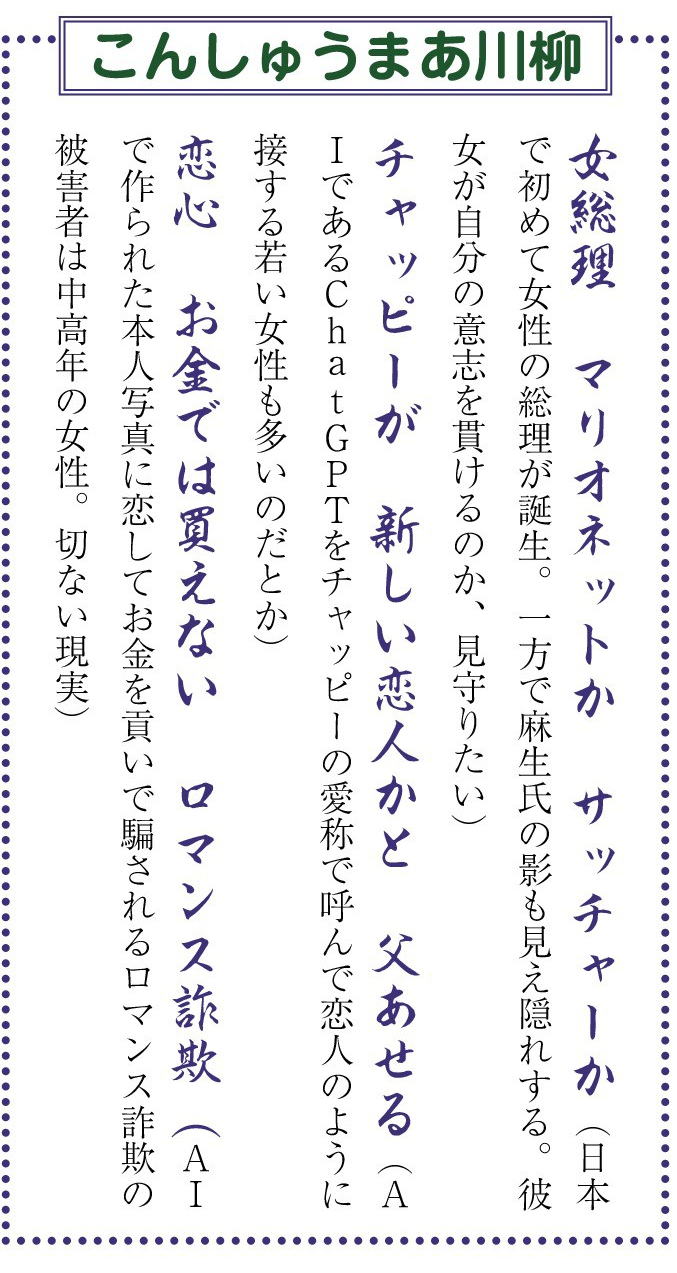 こんしゅうまあ川柳
女総理　マリオネットか　サッチャーか（日本
で初めて女性の総理が誕生。一方で麻生氏の影も見え隠れする。彼
女が自分の意志を貫けるのか、見守りたい）
チャッピーが　新しい恋人かと　父あせる（A
IであるChatGPTをチャッピーの愛称で呼んで恋人のように
接する若い女性も多いのだとか）
恋心　お金では買えない　ロマンス詐欺（AI
で作られた本人写真に恋してお金を貢いで騙されるロマンス詐欺の
被害者は中高年の女性。切ない現実）